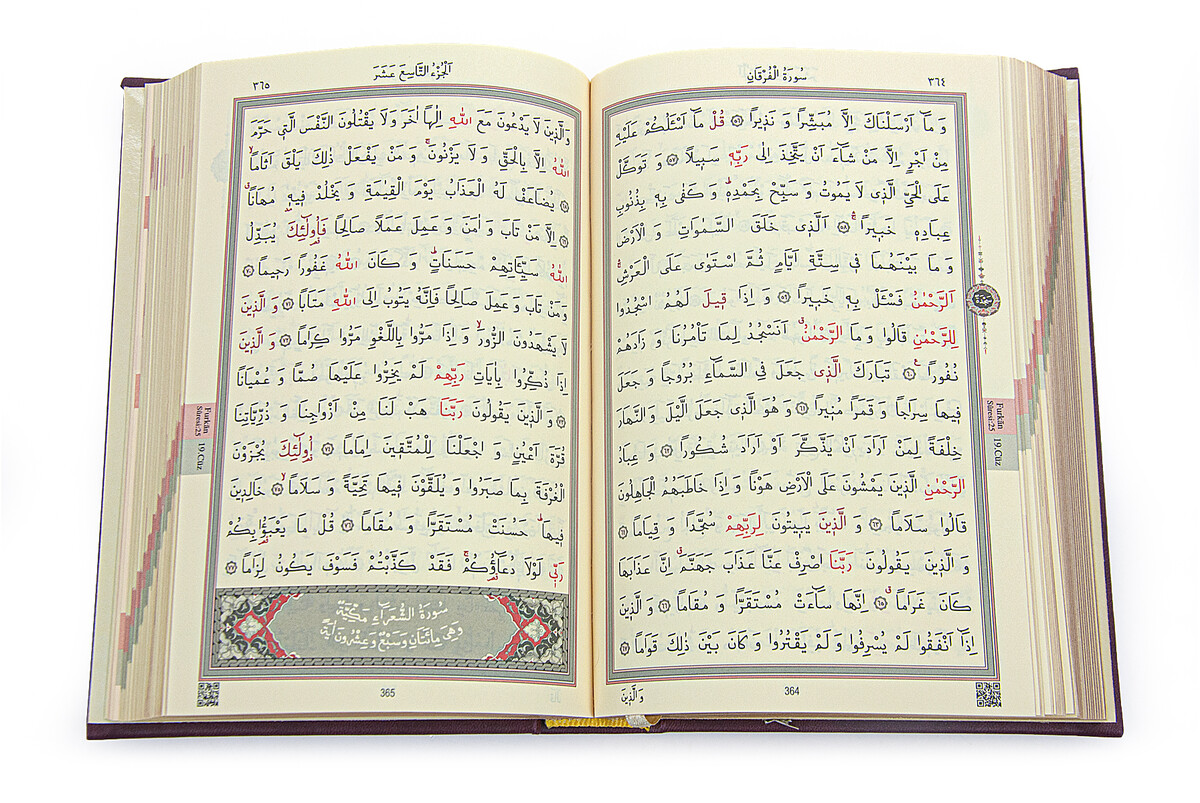 ٣٦٤
سُورَةُ الْفُرْقَانِ
وَ مَٓا اَرْسَلْنَاكَ اِلَّا مُبَشِّرًا وَ نَذٖيرًا ﴿٥٦﴾ قُلْ مَٓا اَسْـَٔلُكُمْ عَلَيْهِ
مِنْ اَجْرٍ اِلَّا مَنْ شَٓاءَ اَنْ يَتَّخِذَ اِلٰى رَبِّهٖ سَبٖيلًا ﴿٥٧﴾ وَ تَوَكَّلْ
عَلَى الْحَيِّ الَّذٖى لَا يَمُوتُ وَ سَبِّحْ بِحَمْدِهٖ وَ كَفٰى بِهٖ بِذُنُوبِ
عِبَادِهٖ خَبٖيرًا ﴿٥٨﴾ اَلَّذٖى خَلَقَ السَّمٰوَاتِ وَ الْاَرْضَ
وَ مَا بَيْنَهُمَا فٖى سِتَّةِ اَيَّامٍ ثُمَّ اسْتَوٰى عَلَى الْعَرْشِ
اَلرَّحْمٰنُ فَسْـَٔلْ بِهٖ خَبٖيرًا ﴿٥٩﴾ وَ اِذَا قٖيلَ لَهُمُ اسْجُدُوا
لِلرَّحْمٰنِ قَالُوا وَ مَا الرَّحْمٰنُ اَنَسْجُدُ لِمَا تَأْمُرُنَا وَ زَادَهُمْ
نُفُورًا ﴿٦٠﴾ تَبَارَكَ الَّذٖى جَعَلَ فِى السَّمَٓاءِ بُرُوجًا وَ جَعَلَ
فٖيهَا سِرَاجًا وَ قَمَرًا مُنٖيرًا ﴿٦١﴾ وَ هُوَ الَّذٖى جَعَلَ الَّيْلَ وَ النَّهَارَ
خِلْفَةً لِمَنْ اَرَادَ اَنْ يَذَّكَّرَ اَوْ اَرَادَ شُكُورًا ﴿٦٢﴾ وَ عِبَادُ
الرَّحْمٰنِ الَّذٖينَ يَمْشُونَ عَلَى الْاَرْضِ هَوْنًا وَ اِذَا خَاطَبَهُمُ الْجَاهِلُونَ
قَالُوا سَلَامًا ﴿٦٣﴾ وَ الَّذٖينَ يَبٖيتُونَ لِرَبِّهِمْ سُجَّدًا وَ قِيَامًا ﴿٦٤﴾
وَ الَّذٖينَ يَقُولُونَ رَبَّنَا اصْرِفْ عَنَّا عَذَابَ جَهَنَّمَ اِنَّ عَذَابَهَا
كَانَ غَرَامًا ﴿٦٥﴾ اِنَّهَا سَٓاءَتْ مُسْتَقَرًّا وَ مُقَامًا ﴿٦٦﴾ وَ الَّذٖينَ
اِذَٓا اَنْفَقُوا لَمْ يُسْرِفُوا وَ لَمْ يَقْتُرُوا وَ كَانَ بَيْنَ ذٰلِكَ قَوَامًا ﴿٦٧﴾
364
وَ الَّذٖينَ
Furkân
Sûresi:25
19.Cüz
اَلْجُزْءُ التَّاسِعَ عَشَرَ
٣٦٥
وَالَّذٖينَ لَا يَدْعُونَ مَعَ اللّٰهِ اِلٰهًا اٰخَرَ وَ لَا يَقْتُلُونَ النَّفْسَ الَّتٖى حَرَّمَ
اللّٰهُ اِلَّا بِالْحَقِّ وَ لَا يَزْنُونَ وَ مَنْ يَفْعَلْ ذٰلِكَ يَلْقَ اَثَامًا
﴿٦٨﴾ يُضَاعَفْ لَهُ الْعَذَابُ يَوْمَ الْقِيٰمَةِ وَ يَخْلُدْ فٖيهٖ مُهَانًا
﴿٦٩﴾ اِلَّا مَنْ تَابَ وَ اٰمَنَ وَ عَمِلَ عَمَلًا صَالِحًا فَاُولٰٓئِكَ يُبَدِّلُ
اللّٰهُ سَيِّـَٔاتِهِمْ حَسَنَاتٍ وَ كَانَ اللّٰهُ غَفُورًا رَحٖيمًا ﴿٧٠﴾
وَ مَنْ تَابَ وَ عَمِلَ صَالِحًا فَاِنَّهُ يَتُوبُ اِلَى اللّٰهِ مَتَابًا ﴿٧١﴾ وَ الَّذٖينَ
لَا يَشْهَدُونَ الزُّورَ وَ اِذَا مَرُّوا بِاللَّغْوِ مَرُّوا كِرَامًا ﴿٧٢﴾ وَ الَّذٖينَ
اِذَا ذُكِّرُوا بِاٰيَاتِ رَبِّهِمْ لَمْ يَخِرُّوا عَلَيْهَا صُمًّا وَ عُمْيَانًا
﴿٧٣﴾ وَ الَّذٖينَ يَقُولُونَ رَبَّنَا هَبْ لَنَا مِنْ اَزْوَاجِنَا وَ ذُرِّيَّاتِنَا
قُرَّةَ اَعْيُنٍ وَ اجْعَلْنَا لِلْمُتَّقٖينَ اِمَامًا ﴿٧٤﴾ اُولٰٓئِكَ يُجْزَوْنَ
الْغُرْفَةَ بِمَا صَبَرُوا وَ يُلَقَّوْنَ فٖيهَا تَحِيَّةً وَ سَلَامًا ﴿٧٥﴾ خَالِدٖينَ
فٖيهَا حَسُنَتْ مُسْتَقَرًّا وَ مُقَامًا ﴿٧٦﴾ قُلْ مَا يَعْبَؤُ۬ا بِكُمْ
رَبّٖى لَوْلَا دُعَٓاؤُ۬كُمْ فَقَدْ كَذَّبْتُمْ فَسَوْفَ يَكُونُ لِزَامًا ﴿٧٧﴾
سُورَةُ الشُّعَرَٓاءِ مَكِّيَّةٌ
وَ هِىَ مِائَتَانِ وَ سَبْعٌ وَ عِشْرُونَ اٰيَةً
365
Furkân
Sûresi:25
19.Cüz